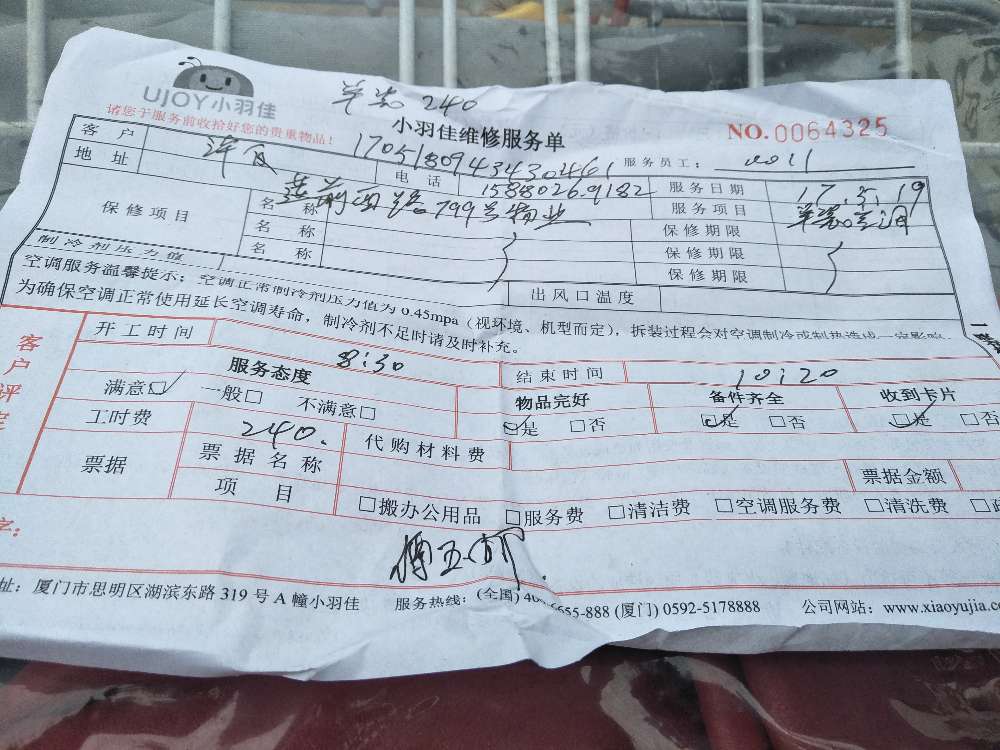 UJOY小羽佳
单装 240
请您于服务前收拾好您的贵重物品!
小羽佳维修服务单
NO.0064325
170518094343430461
服务员工: 0011
客户 电话 15880269182 服务日期 17.5.19
地址 莲前西路799号物业 服务项目 单装空调
保修项目 名称 保修期限
名称 保修期限
名称 保修期限
制冷剂压力值 出风口温度
空调服务温馨提示:空调正常制冷剂压力值为0.45mpa(视环境、机型而定),拆装过程会对空调制冷或制热造成一定影响.
为确保空调正常使用延长空调寿命,制冷剂不足时请及时补充。
客户评定
开工时间 8:30 结束时间 10:20
服务态度 物品完好 备件齐全 收到卡片
满意□✓ 一般□ 不满意□ □✓是 □否 □✓是 □否 □✓是 □否
工时费 240. 代购材料费
票据 票据名称 票据金额
项目 □搬办公用品 □服务费 □清洁费 □空调服务费 □清洗费
字:
址:厦门市思明区湖滨东路319号A幢小羽佳 服务热线:(全国)40 6655-888 (厦门) 0592-5178888 公司网站:www.xiaoyujia.co